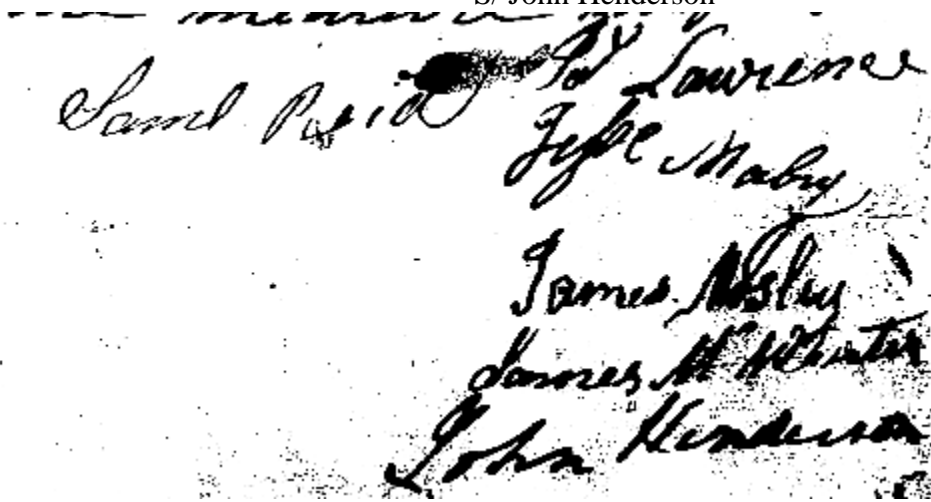 S/ John Henderson
Saml Reid
Ed Lawrence
Zeke Mabry
James Mosley
James McWhirter
John Henderson